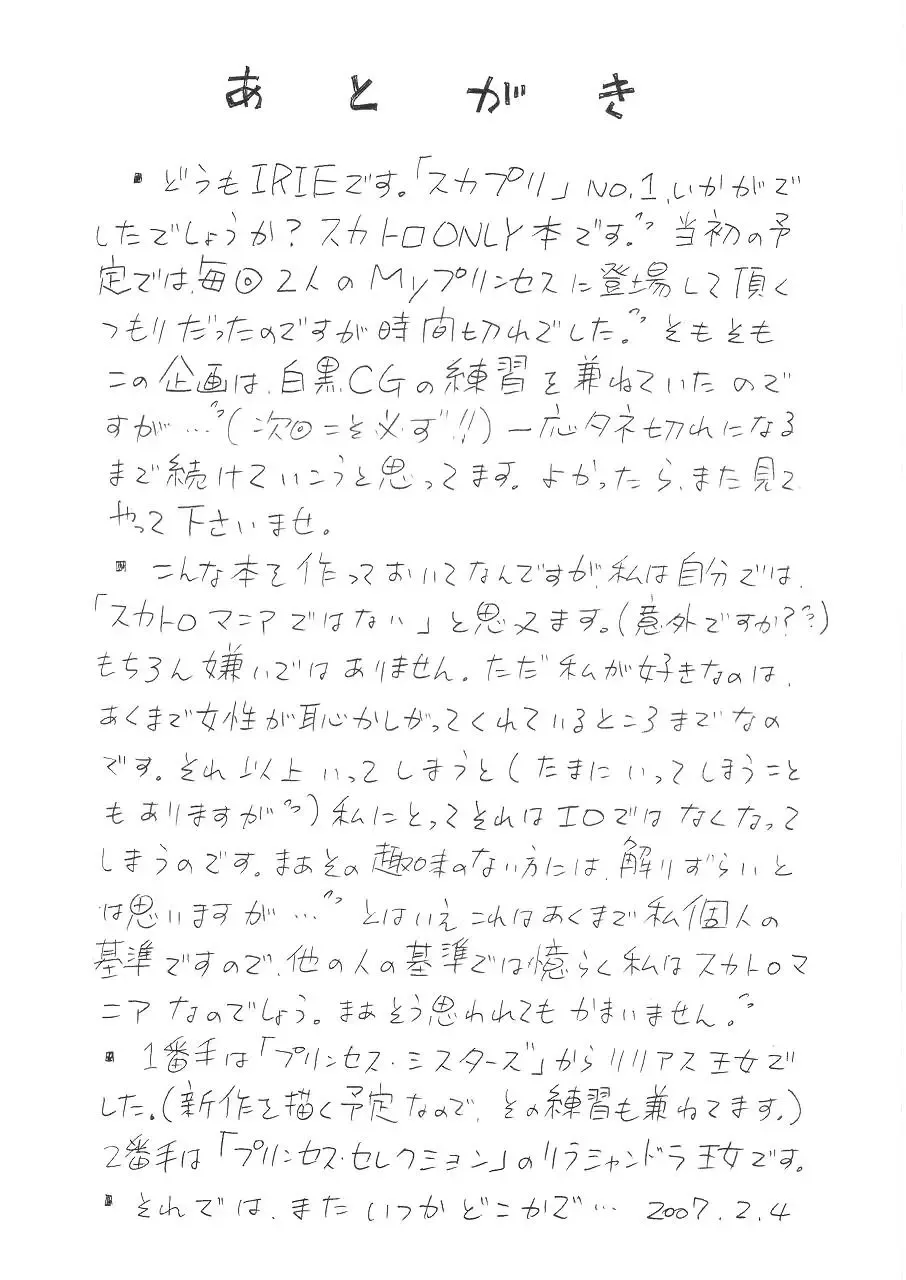 あとがき
▪どうもIRIEです。「スカプリ」NO.1、いかがで
したでしょうか？スカトロONLY本です。〃当初の予
定では、毎回2人のMyプリンセスに登場して頂く
つもりだったのですが時間切れでした。〃そもそも
この企画は、白黒CGの練習を兼ねていたので
すが…〃（次回こそ必ず!!）一応タネ切れになる
まで続けていこうと思ってます。よかったら、また見て
やって下さいませ。
▪こんな本を作っておいてなんですが、私は自分では、
「スカトロマニアではない」と思えます。（意外ですか??）
もちろん嫌いではありません。ただ私が好きなのは、
あくまで女性が恥かしがってくれているところまでなの
です。それ以上いってしまうと（たまにいってしまうこと
もありますが〃）私にとってそれはIOではなくなって
しまうのです。まぁその趣味のない方には、解りずらいと
は思いますが…〃とはいえこれはあくまで私個人の
基準ですので、他の人の基準では憶らく私はスカトロマ
ニアなのでしょう。まぁそう思われてもかまいません。〃
▪1番手は「プリンセス・ミスターズ」からリリアス王女で
した。（新作を描く予定なので、その練習も兼ねてます。）
2番手は「プリンセス・セレクション」のリラシャンドラ王女です。
▪それでは、またいつかどこかで… 2007.2.4